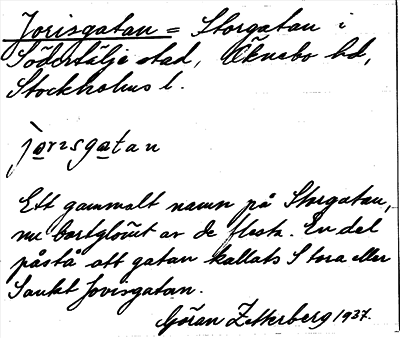 Jorisgatan = Storgatan i
Södertälje stad, Öknebo hd,
Stockholms l.
jo̲rɩsga̲tan
Ett gammalt namn på Storgatan,
nu bortglömt av de flesta. En del
påstå att gatan kallats Stora eller
Sankt Jorisgatan.
Göran Zetterberg 1937.